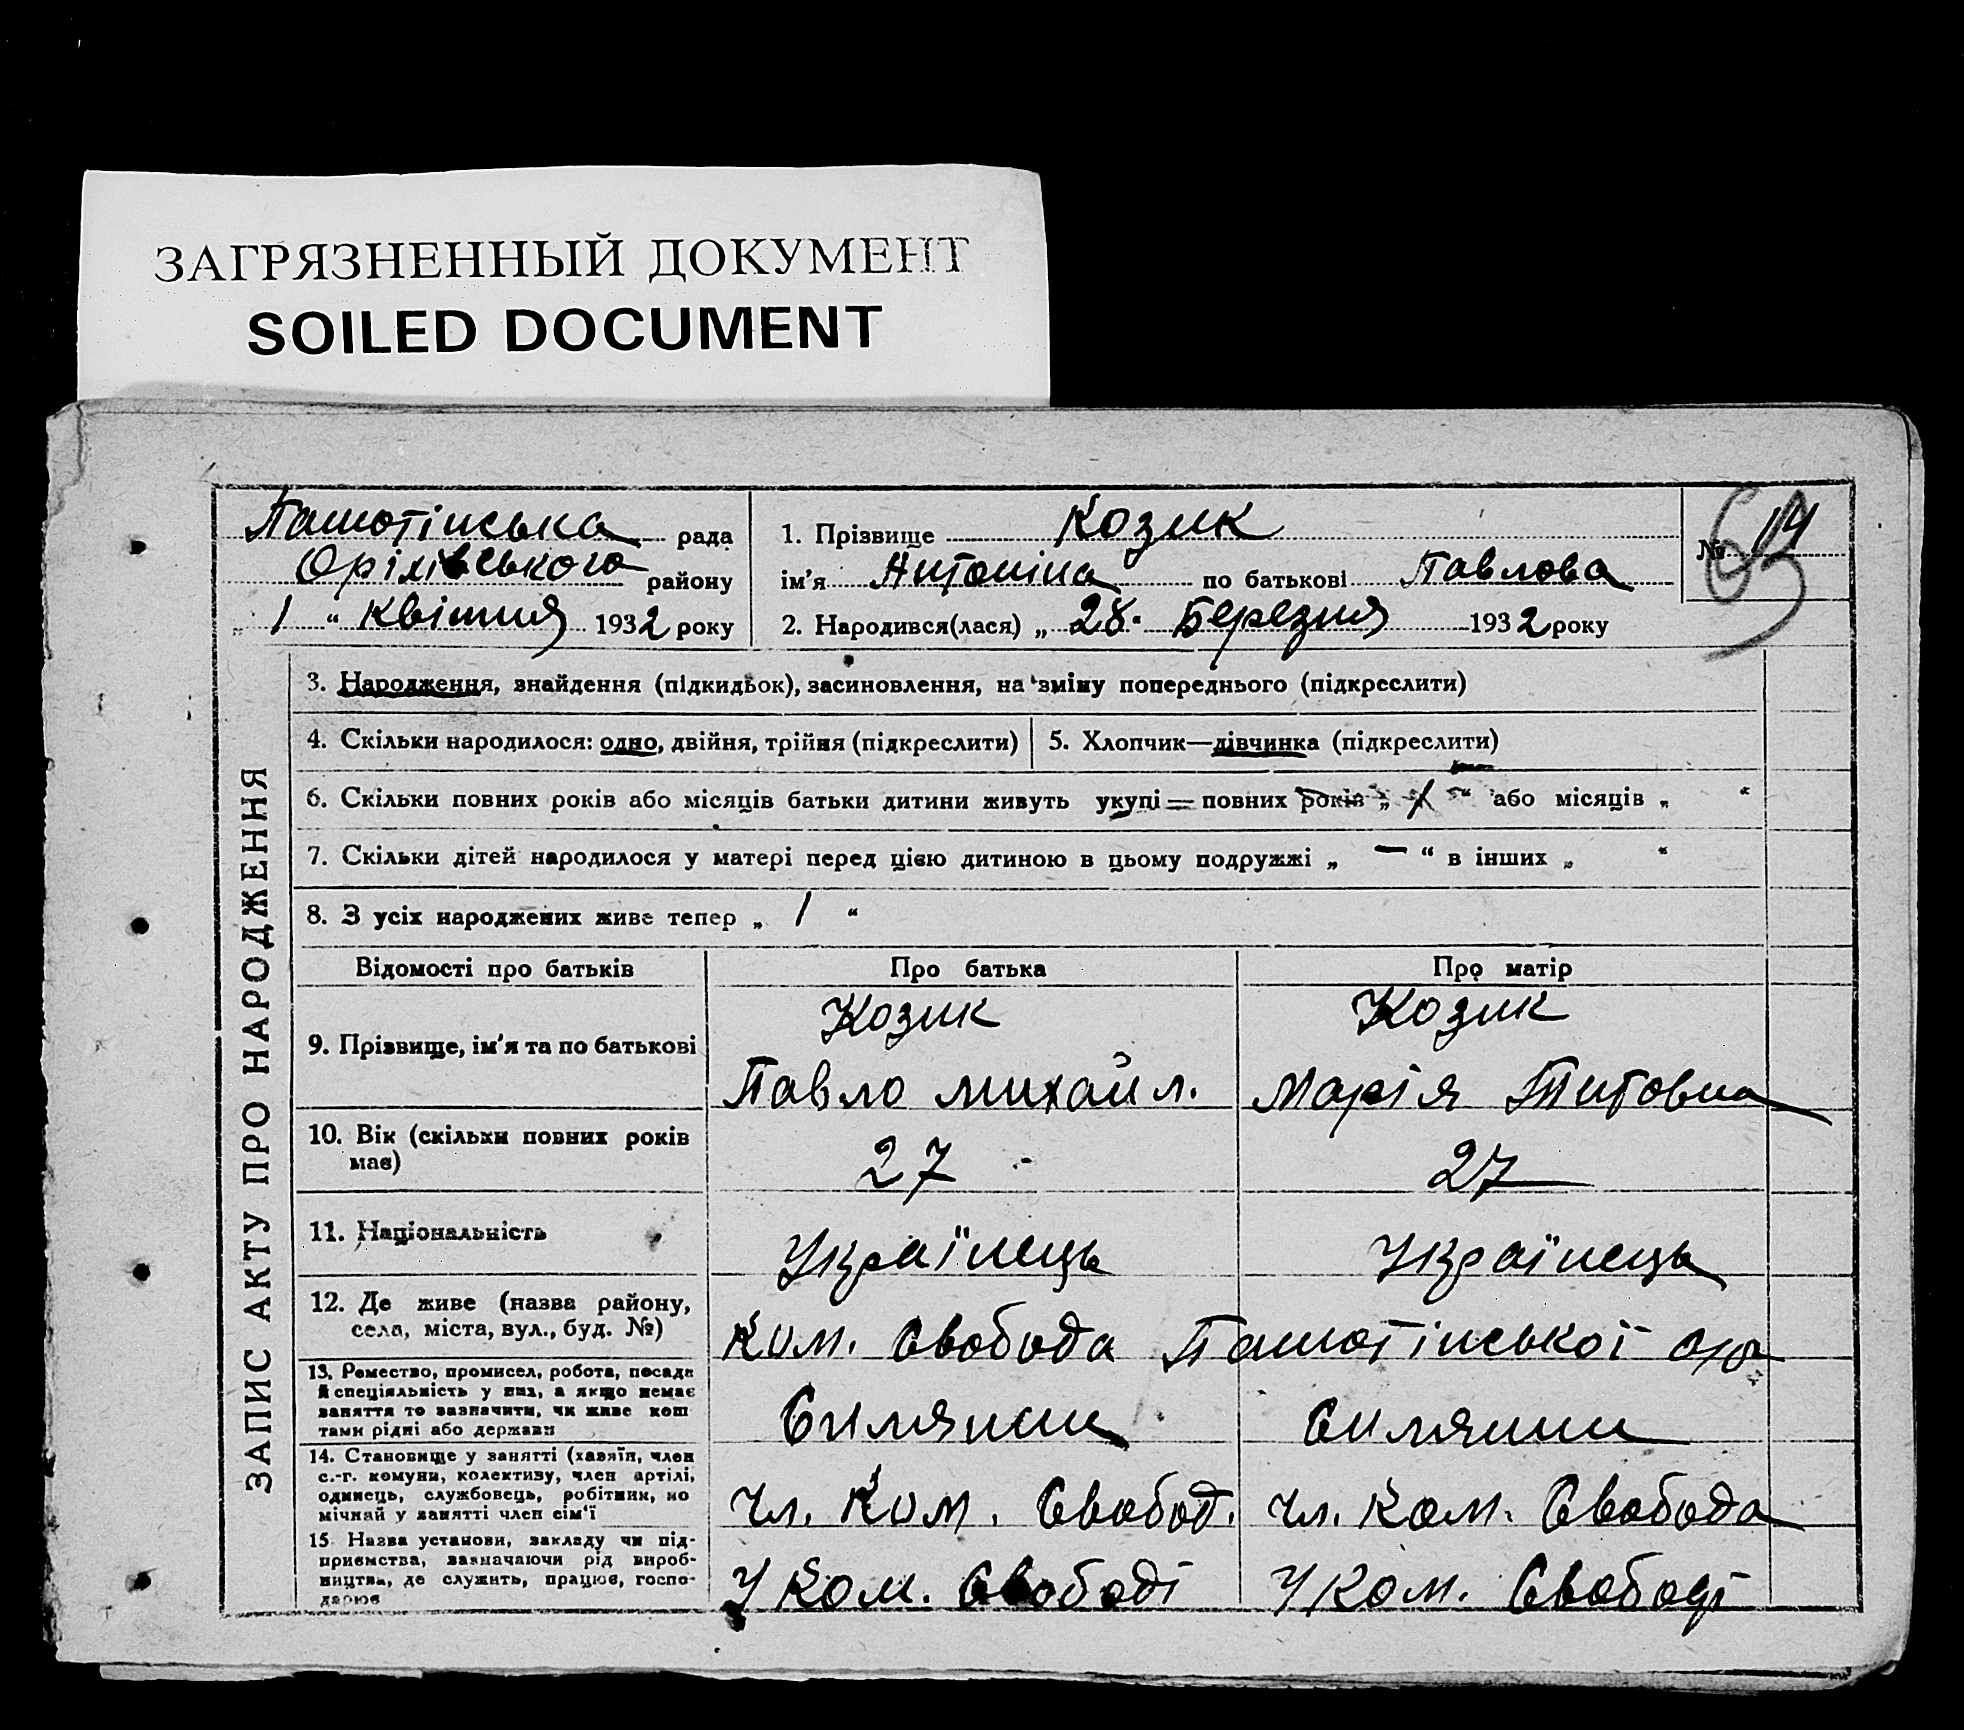 ЗАГРЯЗНЕННЫЙ ДОКУМЕНТ
SOILED DOCUMENT
Пашотінська рада
Орілівського району
„ 1 “ Квітня 1932 року
1. Прізвище Козик
ім’я Антоніна по батькові Павлова
2. Народився(лася) „ 28. Березня 1932 року
№ 14
63
ЗАПИС АКТУ ПРО НАРОДЖЕННЯ
3. Народження, знайдення (підкидьок), засиновлення, на зміну попереднього (підкреслити)
4. Скільки народилося: одно, двійня, трійня (підкреслити)
5. Хлопчик—дівчинка (підкреслити)
6. Скільки повних років або місяців батьки дитини живуть укупі — повних років „ 1 “ або місяців „ “
7. Скільки дітей народилося у матері перед цією дитиною в цьому подружжі „ — “ в інших „ “
8. З усіх народжених живе тепер „ 1 “
Відомості про батьків Про батька Про матір
9. Прізвище, ім’я та по батькові
Козик
Павло Михайл.
Козик
Марія Титовна
10. Вік (скільки повних років
має)
27
27
11. Національність
Українець
Українець
12. Де живе (назва району,
села, міста, вул., буд. №)
Ком. Свобода Пашотінської
13. Ремество, промисел, робота, посада
й спеціяльність у них, а якщо немає
заняття то зазначити, чи живе кош
тами рідні або держави
Силянин
Силянин
14. Становище у занятті (хазяїн, член
с.-г. комуни, колективу, член артілі,
одинець, службовець, робітник, по
мічнай у занятті член сім‘ї
Чл. Ком. Свобод.
Чл. Ком. Свобода
15 Назва установи, закладу чи під-
приємства, зазначаючи рід вироб-
ництва, де служить, працює, госпо-
дарює
У Ком. Свободі
У Ком. Свободі